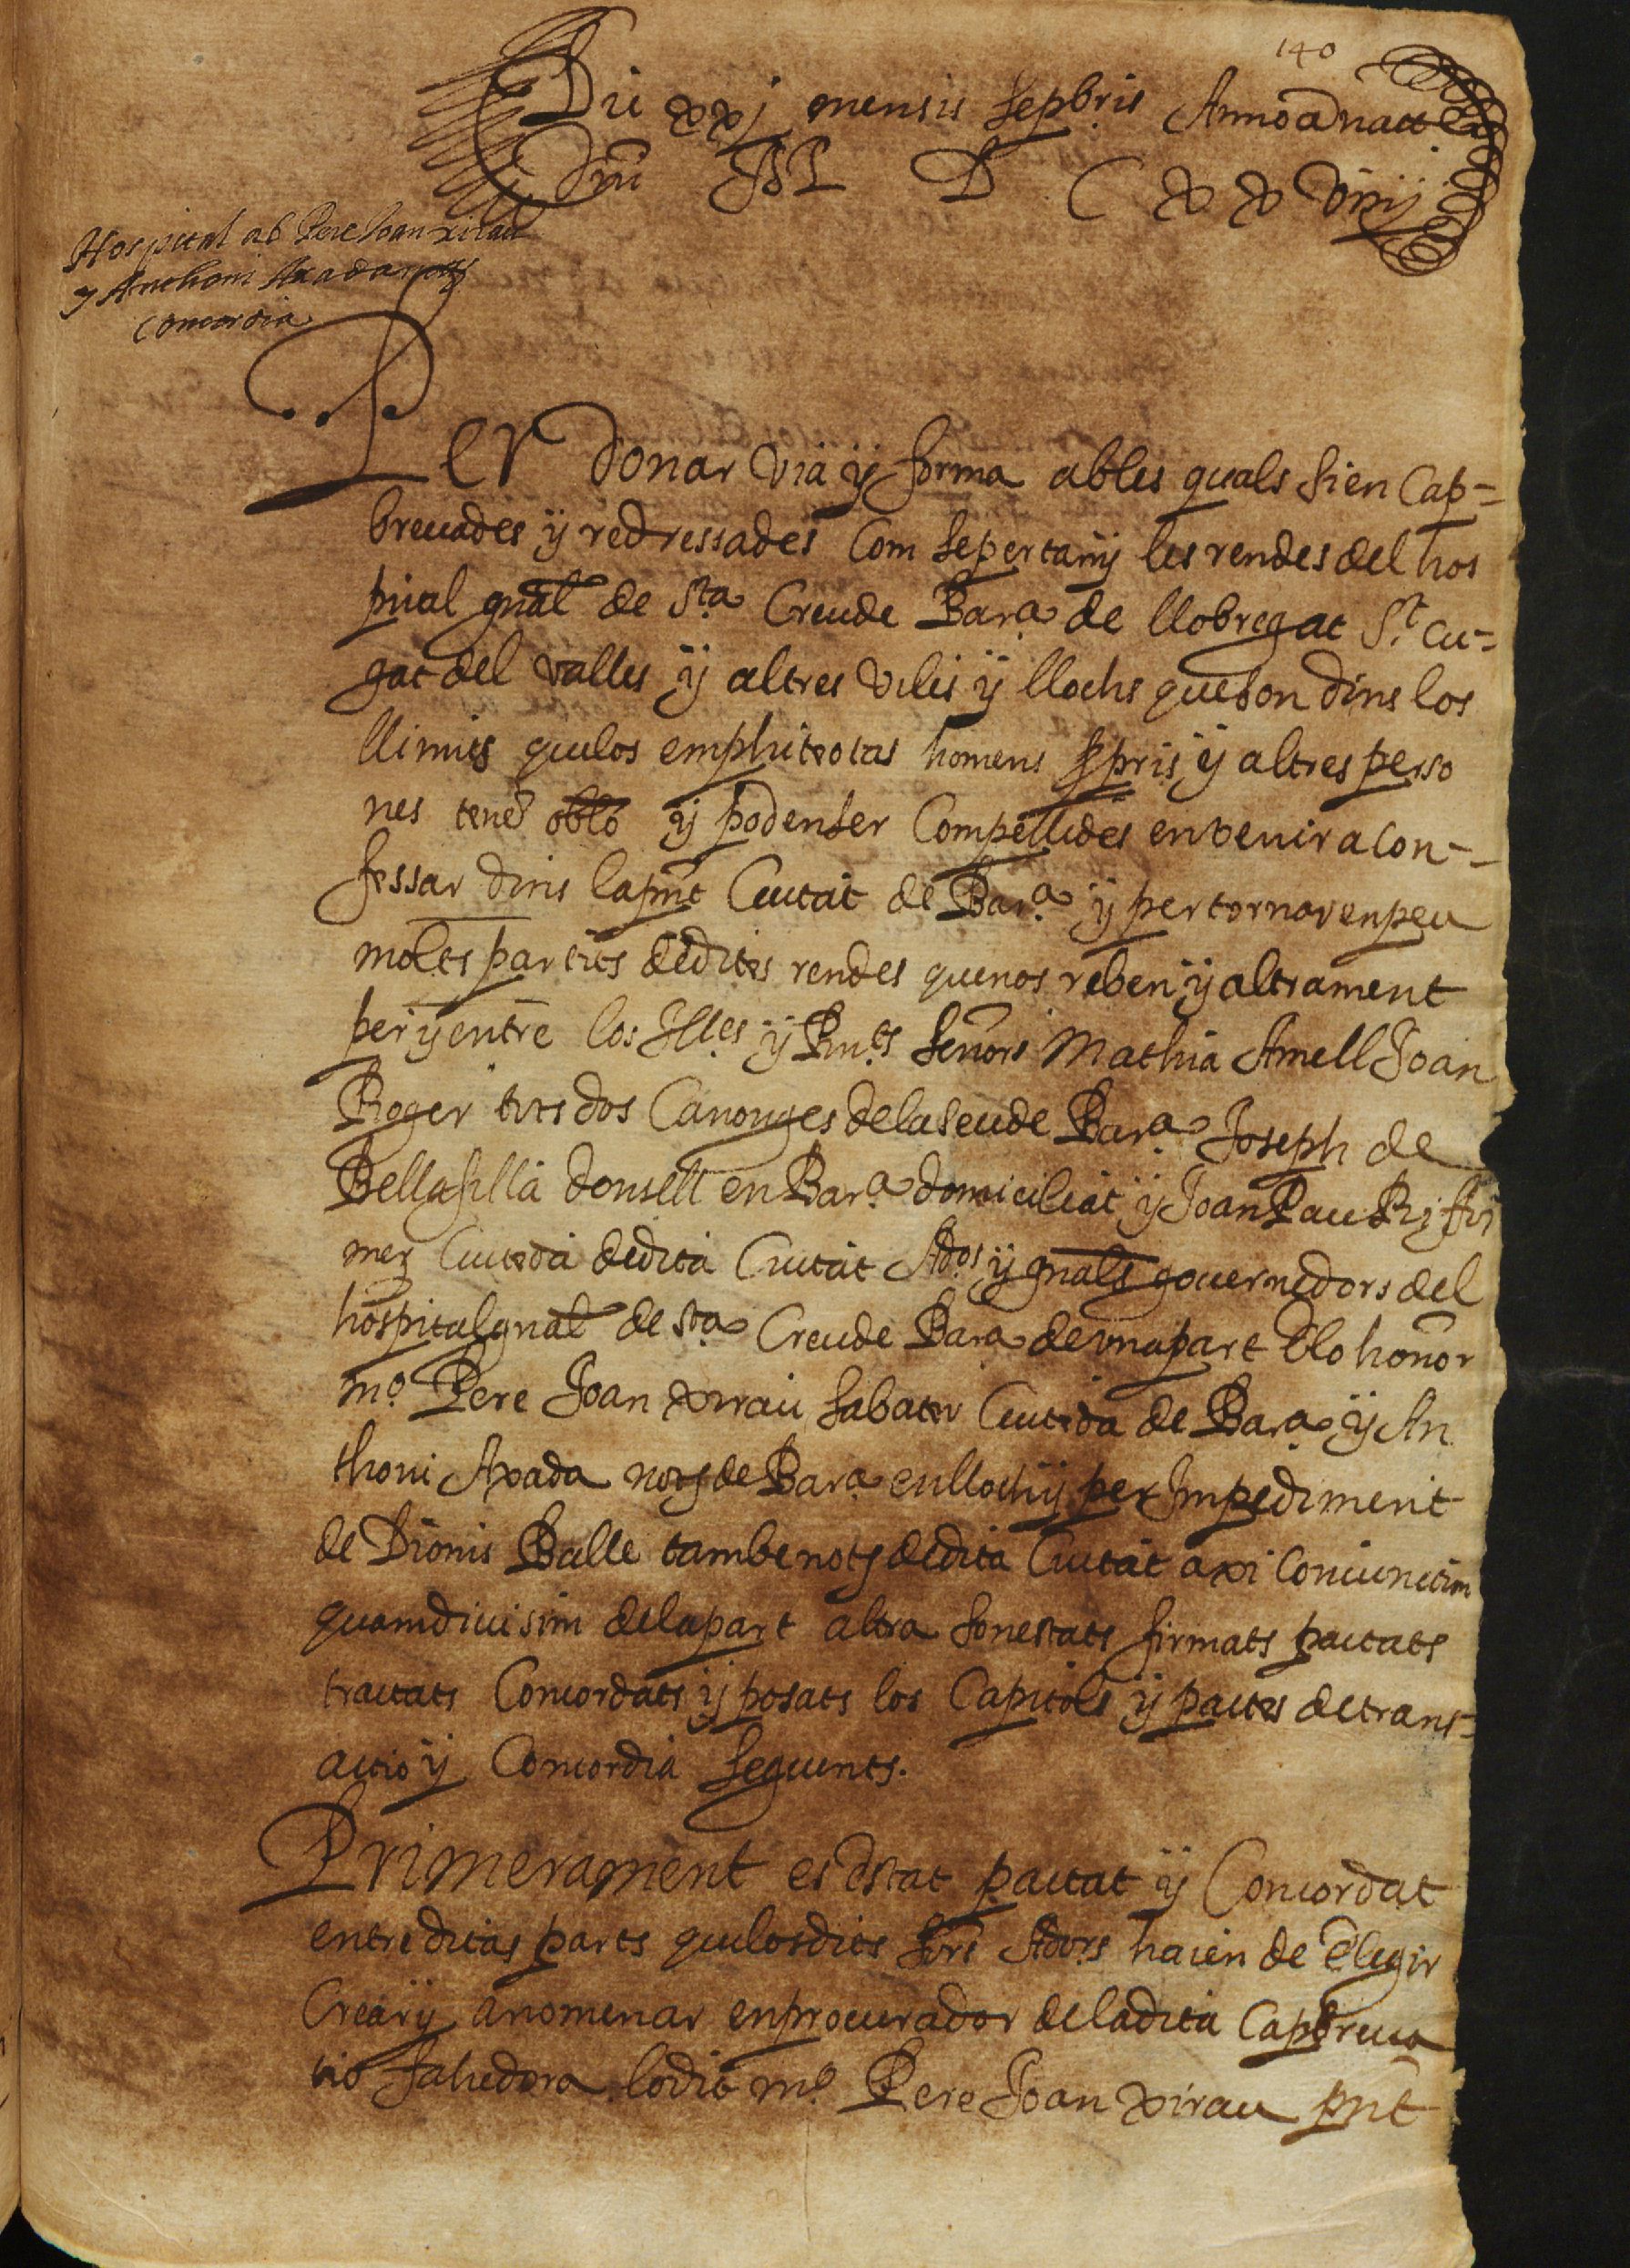 140
Die xxj mensis Sepbris Anno a natte
Dni M D C xx viiij
Hospital ab Pere Joan xirau
y Anthoni Axada noty
Concordia
Per donar via ÿ forma ables quals sien Cap=
breuades ÿ redressades Com sepertanÿ les rendes del hos
pital gnal de Sta Creude Bara de llobregat St cu=
gat del valles ÿ altres viles ÿ llochs queson dins los
llimits quelos emphiteotas homens ÿ altres perso
nes tene oblo ÿ podenser Compellides envenir a Con-
fessar dins lapnt Ciutat de Bara ÿ per tornar enpeu
moltes parties dedites rendes quenos reben ÿ altrament
per ÿ entre los Illes ÿ Rnts Señors Mathia Amell Joan
Roger tots dos Canonges delaseude Bara Joseph de
Bellafilla donsell en Bara domiciliat ÿ Joan Pau
mer Ciuteda dedita Ciutat Ados ÿ gnals gouernedors del
hospital gnal de sta Creude Bara de vna part E lo honor
mo Pere Joan xirau sabater Ciuteda de Bara ÿ An
thoni Axada noty de Bara enlloch ÿ per Impediment
de Dionis Balle tambe noty dedita Ciutat axi Coniunctim
quamdiuisim delapart altra sonestats firmats pactats
tractats Concordats ÿ posats los Capitols ÿ pactes detrans=
actio ÿ Concordia seguents.
Primerament es estat pactat ÿ Concordat
entre ditas parts quelosdits sors Adors haien de elegir
Crear ÿ anomenar enprocurador deladita Capbreua
tio fahedora lodit mo Pere Joan xirau pnt